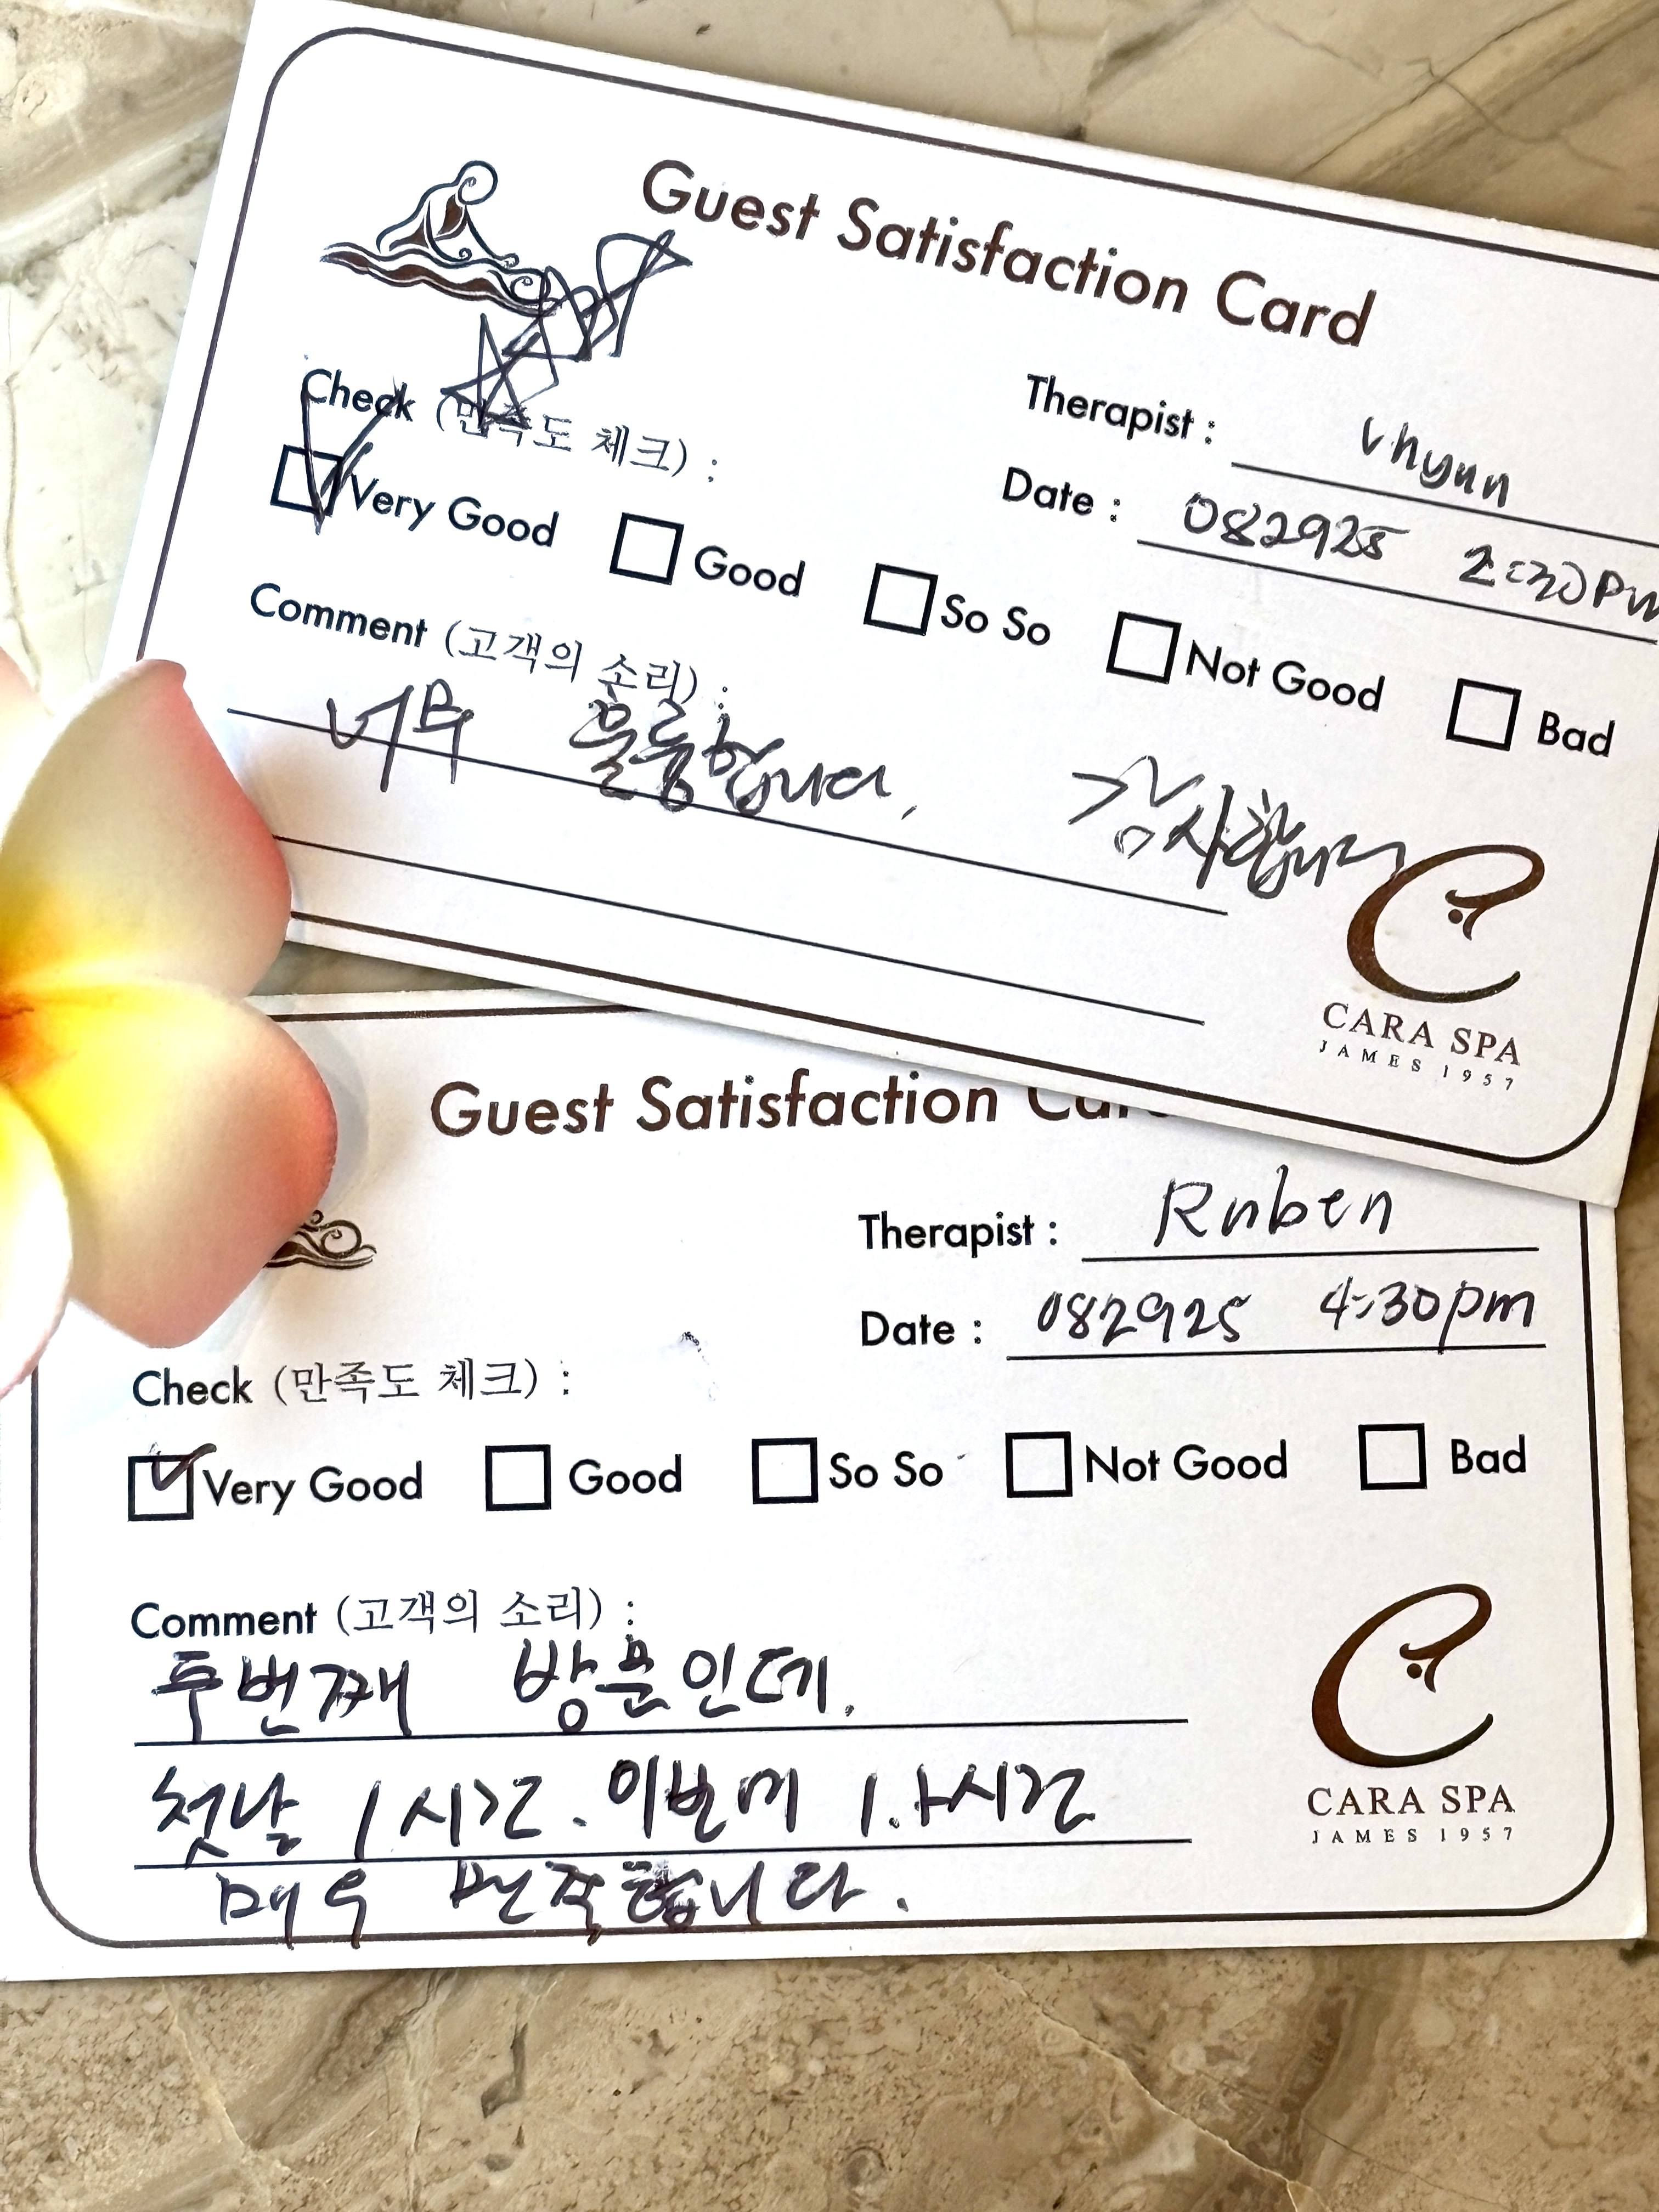 Guest Satisfaction Card
Therapist : Vhynn
Date : 082925 2:30PM
Check (만족도 체크) :
Very Good Good So So Not Good Bad
Comment (고객의 소리) :
너무 훌륭합니다, 감사합니다
CARA SPA
JAMES 1957
Guest Satisfaction
Therapist : Ruben
Date : 082925 4:30pm
Check (만족도 체크) :
Very Good Good So So Not Good Bad
Comment (고객의 소리) :
두번째 방문인데.
첫날 1시간. 이번에 시간
매우 만족합니다.
CARA SPA
JAMES 1957